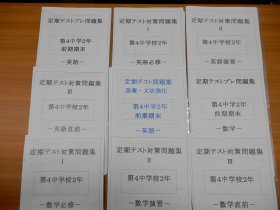 定期テストプレ問題集
第4中学校2年
前期期末
―英語―
定期テスト対策問題集
Ⅰ
第4中学校2年
―英語必修―
定期テスト対策問題集
Ⅱ
第4中学校2年
―英語演習―
定期テスト対策問題集
Ⅲ
第4中学校2年
―英語直前―
定期テスト対策問題集
語彙・文法強化
第4中学校2年
前期期末
―英語―
定期テストプレ問題集
第4中学校2年
前期期末
―数学―
定期テスト対策問題集
Ⅰ
第4中学校2年
―数学必修―
定期テスト対策問題集
Ⅱ
第4中学校2年
―数学演習―
定期テスト対策問題集
Ⅲ
第4中学校2年
―数学直前―